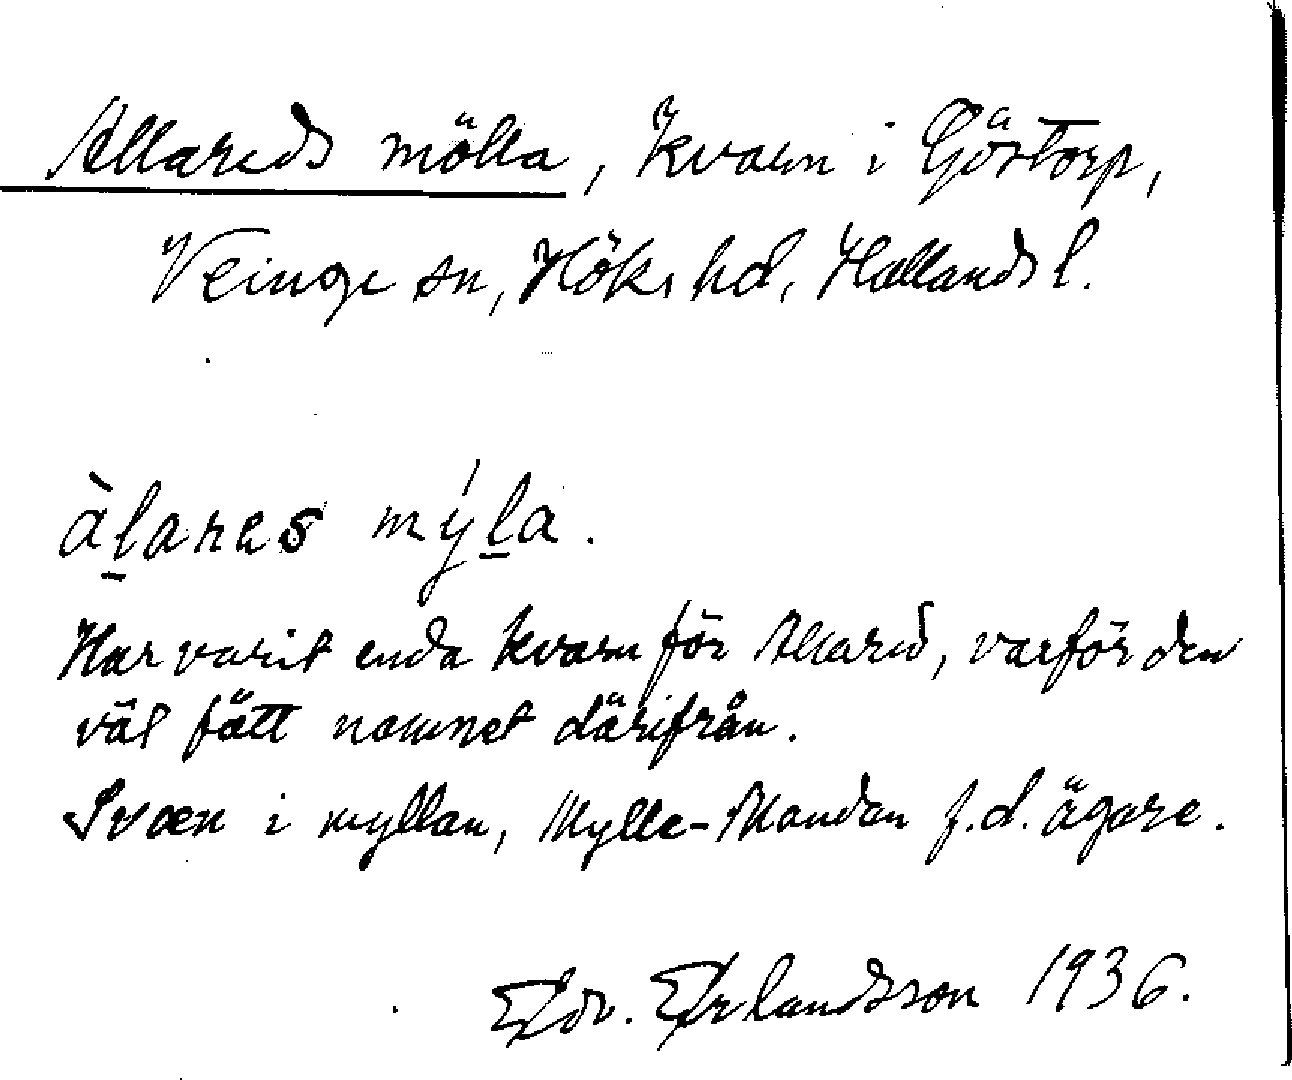 Allareds mölla, kvarn i Göstorp,
Veinge sn, Höks hd, Hallands l.
àḻares mýḻa.
Har varit enda kvarn för Allared, varför den
väl fått namnet därifrån.
Sven i myllan, Mylle- f.d. ägare.
Edv. Erlandsson 1936.